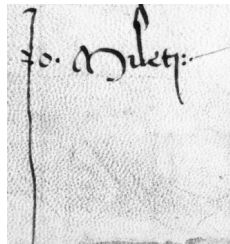 Jo. Milet: